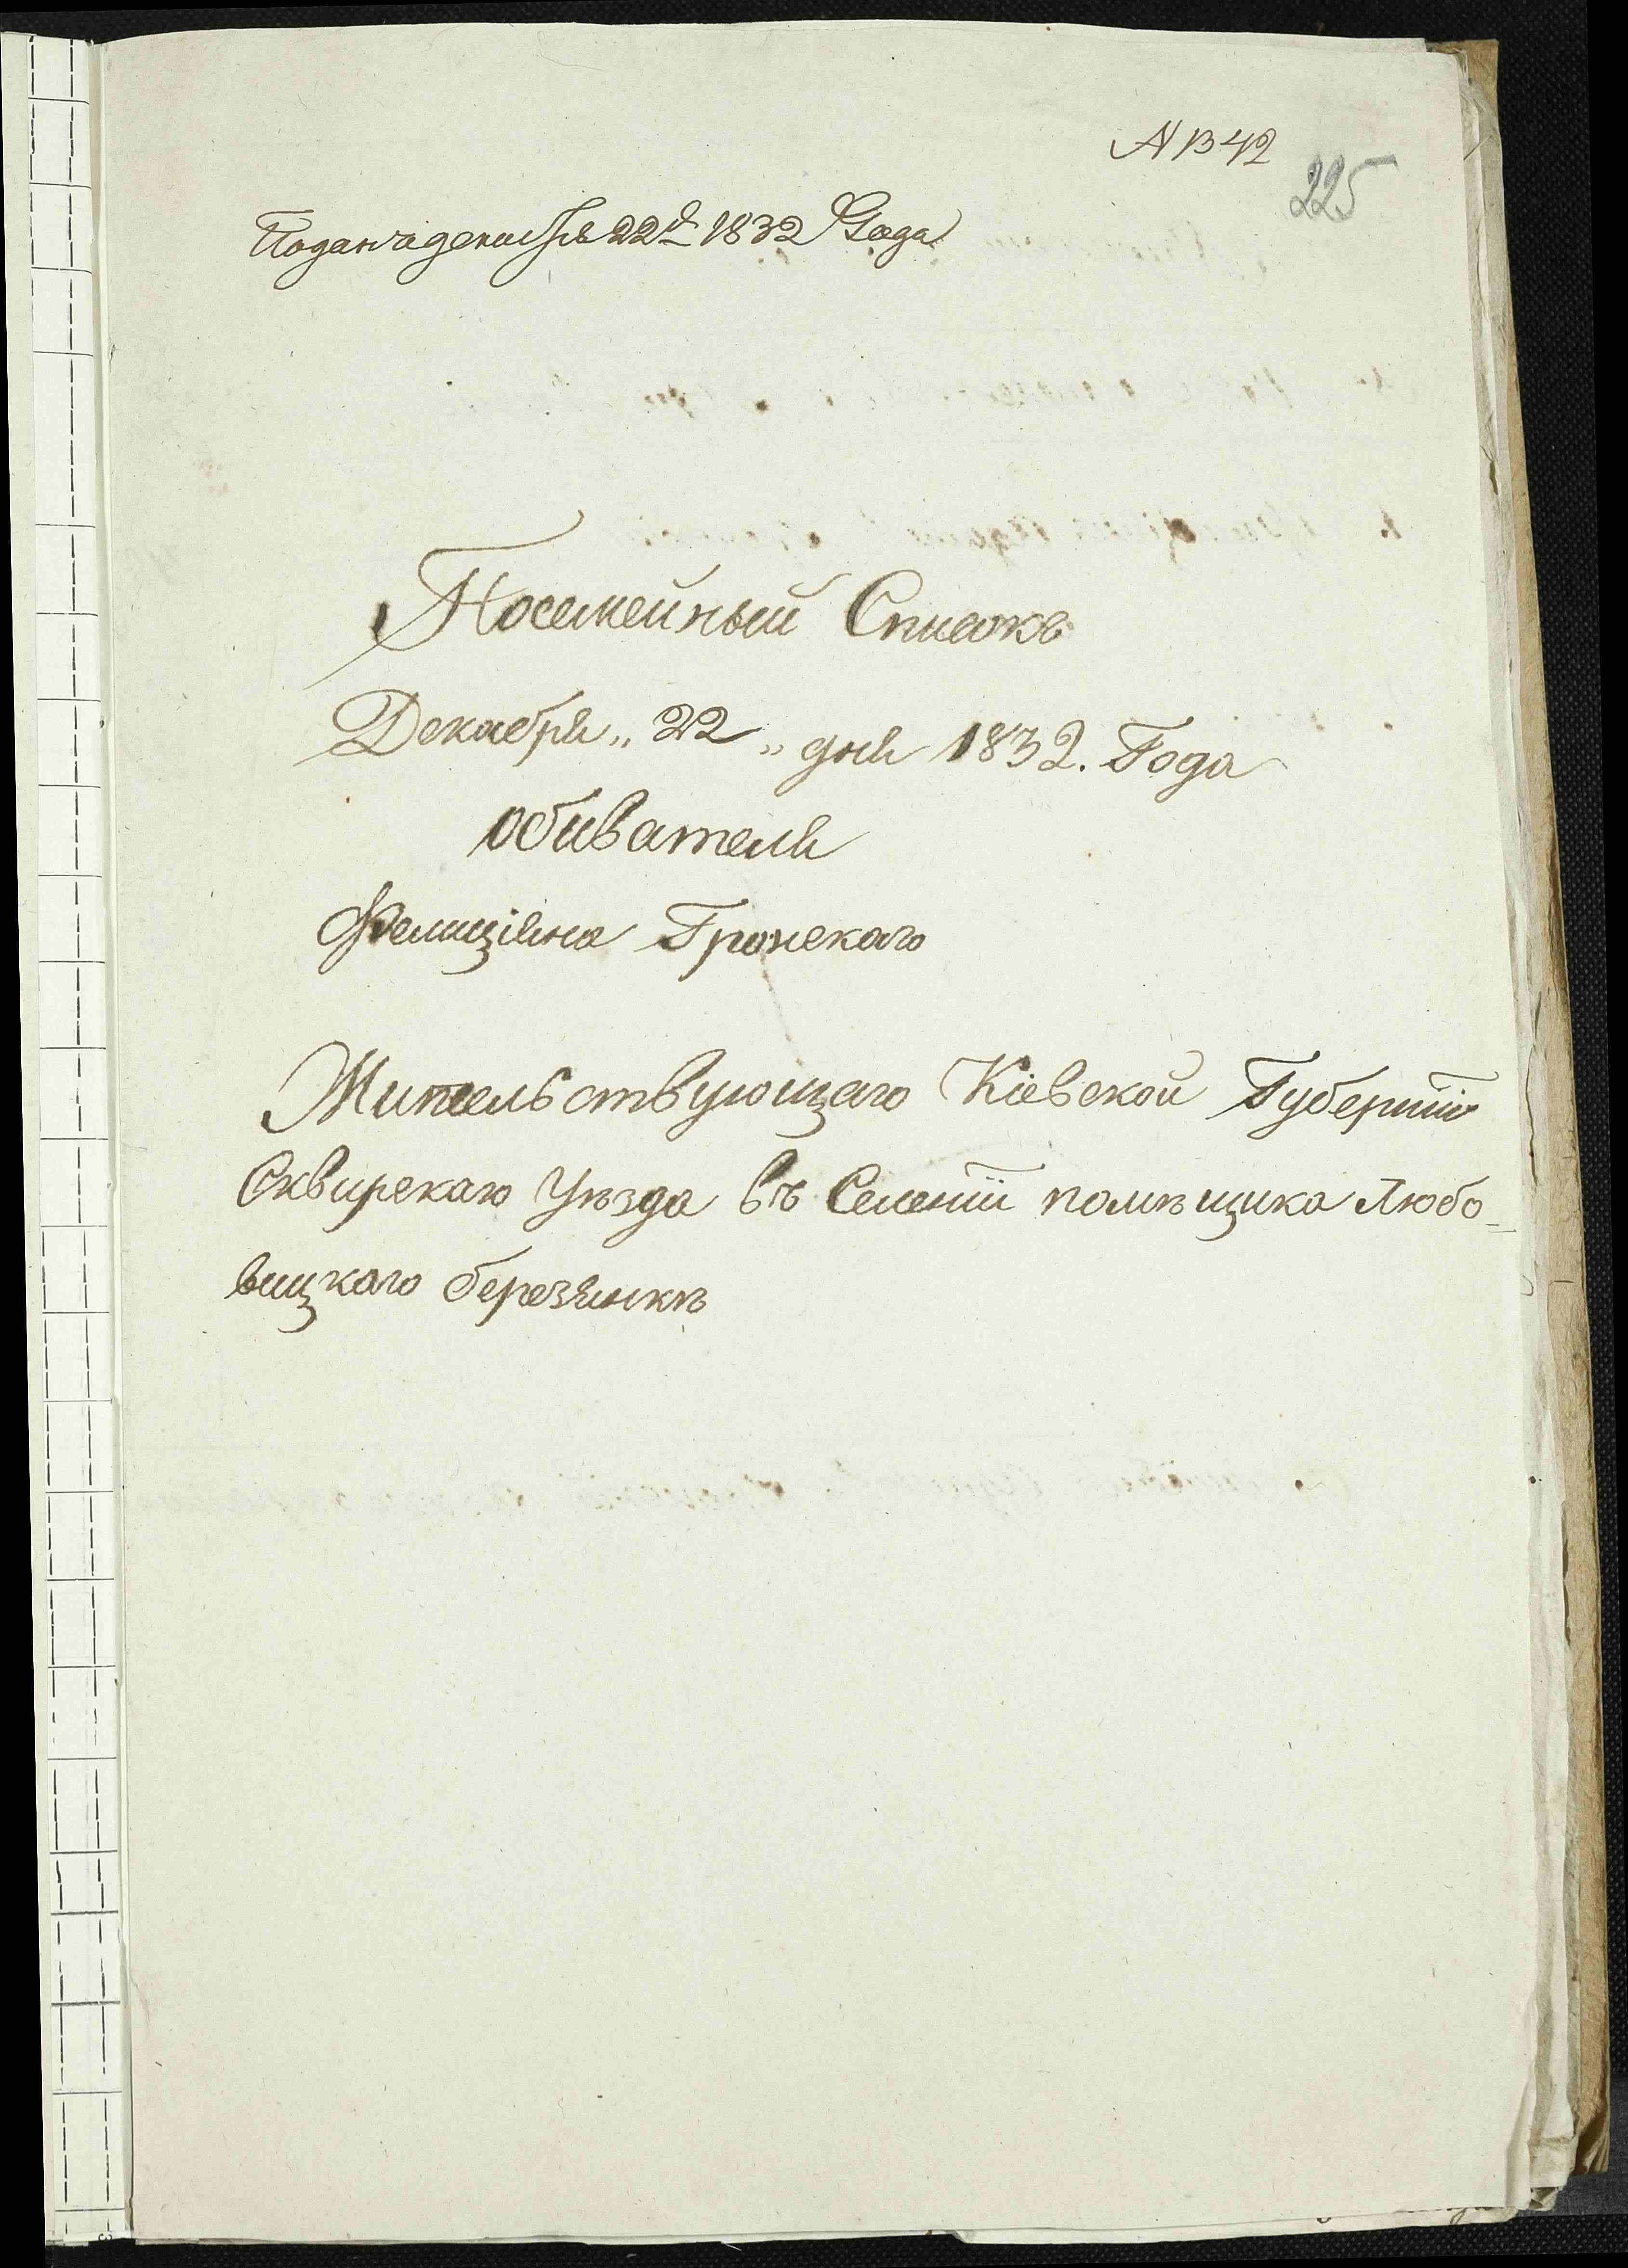 N 1342
225
Подан декабря 22 д. 1832 Года
Посемейный Список
Декабря „ 22 „ дня 1832. Года
обивателя
Фелицияна Гронскаго
Жительствующаго Кіевской Губерніи
Сквирскаго Уѣзда въ Селеніи помѣщика Любо-
вицкаго березянкѣ